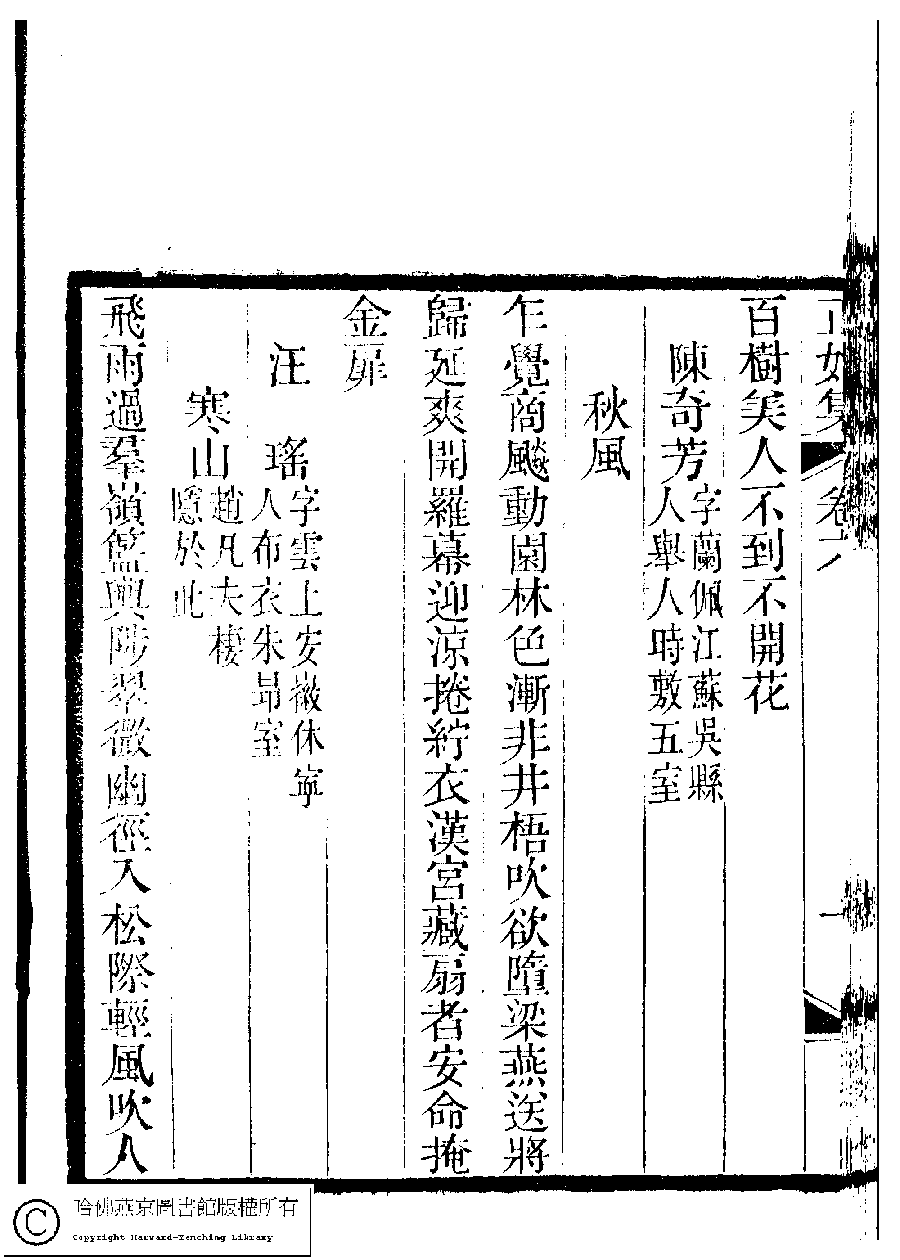 正始集 卷六 一
百樹美人不到不開花
陳奇芳 字蘭佩江蘇吳縣
人舉人時敷五室
秋風
乍覺商飈動園林色漸非井梧吹欲墮梁燕送將
歸延爽開羅幕迎涼捲紵衣漢宮藏扇者安命掩
金扉
汪瑤 字雲上安徽休寧
人布衣朱昻室
寒山 趙凡夫棲
隱於此
飛雨過羣嶺籃輿陟翠微幽徑入松際輕風吹人
哈佛燕京圖書館版權所有
Copyright Harvard-Yenching Library